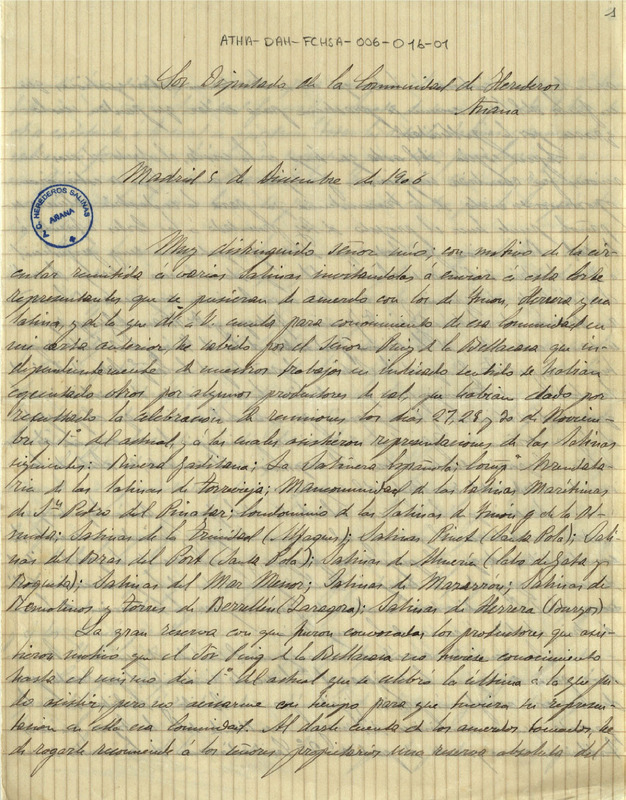 1
ATHA-DAH-FCHSA-006-016-01
Sor Diputado de la Comunidad de Herederos
Añana
Madrid 5 de Diciembre de 1906
C. G. HEREDEROS SALINAS
AÑANA
Muy distinguido señor mío; con motivo de la cir-
cular remitida á varias Salinas invitandolas a enviar á esta Corte
representantes que se pusieran de acuerdo con los de Ymon, Herrera y esa
Salina, y de la que di á V. cuenta para conocimiento de esa Comunidad en
mi carta anterior, he sabido por el Señor Puig de la Bellacasa que in-
dependientemente de nuestros trabajos en indicado sentido se habian
ejecutado otros por algunos productores de sal, que habian dado por
resultado la celebracion de reuniones los dias 27, 28 y 30 de Noviem-
bre y 1º del actual, y a las cuales asistieron representaciones de las Salinas
siguientes: Rivera Gaditana; La Salinera Española; Compª Arrendata-
ria de las Salinas de Torrevieja; Mancomunidad de las Salinas Marítimas
de Sn Pedro del Pinatar; Condominio de las Salinas de Ymon y de la Ol-
meda; Salinas de la Trinidad (Alfaques); Salinas Pinet (Santa Pola); Sali-
nas del Bras del Port (Santa Pola); Salinas de Almería (Cabo de Gata y
Roquetas); Salinas del Mar Menor; Salinas de Mazarron; Salinas de
Remolinos y Torres de Berrellén (Zaragoza); Salinas de Herrera (Burgos)
La gran reserva con que fueron convocados los productores que asis-
tieron motivó que el Sor Puig de la Bellacasa no tuviese conocimiento
hasta el mismo dia 1º del actual que se celebro la última á la que pu-
do asistir, pero no avisarme con tiempo para que tuviera su represen-
tacion en ella esa Comunidad. Al darle cuenta de los acuerdos tomados, he
de rogarle recomiende á los señores propietarios una reserva absoluta del